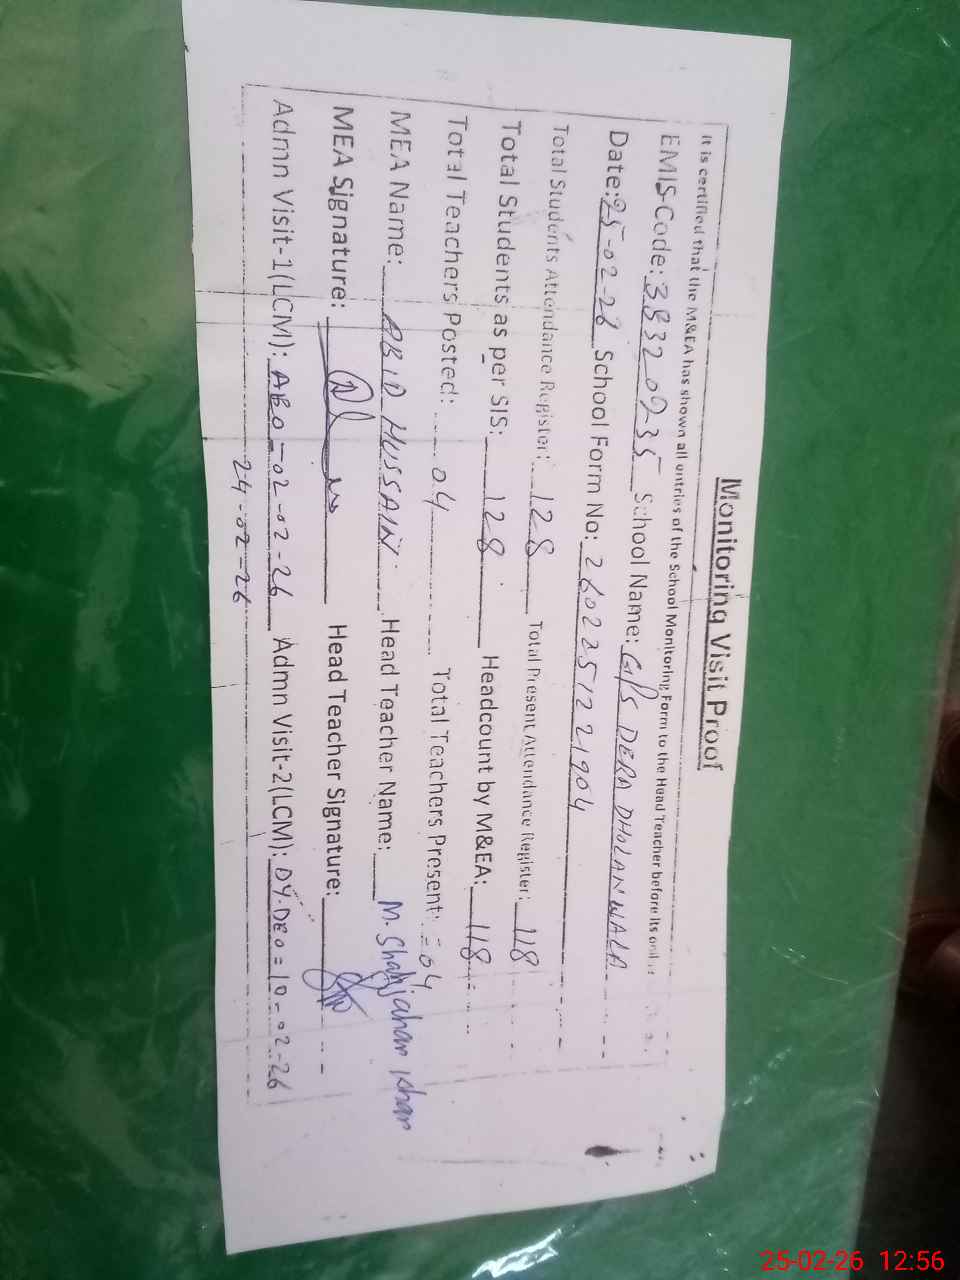 Monitoring Visit Proof
It is certified that the M&EA has shown all entries of the School Monitoring Form to the Head Teacher before its
EMIS Code: 38320935 School Name: G/PS DERA DHOLANWALA
Date: 25-02-26 School Form No: 2602251221904
Total Students Attendance Register: 128 Total Present Attendance Register: 118
Total Students as per SIS: 128 Headcount by M&EA: 118
Total Teachers Posted: 04 Total Teachers Present: =04
MEA Name: ABID HUSSAIN Head Teacher Name: M. Shahjahan Khan
MEA Signature: Head Teacher Signature:
Admn Visit-1(LCM): AEO-02-02-26 Admn Visit-2(LCM): DY.DEO=10-02-26
24-02-26
25-02-26 12:56